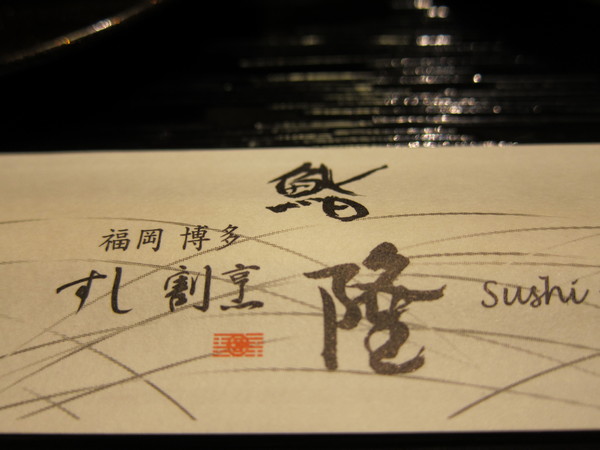 鮨
福岡 博多
すし 割烹
隆
Sushi